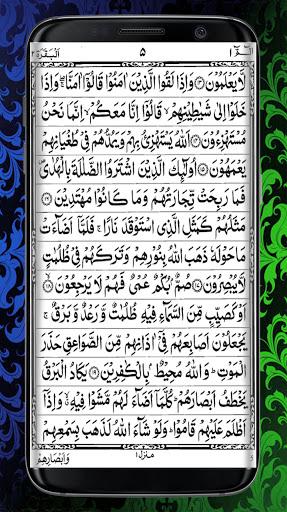 البقرة ٢ ۵ الٓمّٓ ١
لَا يَعْلَمُوْنَ ﴿۱۳﴾ وَاِذَا لَقُوا الَّذِيْنَ اٰمَنُوْا قَالُوْۤا اٰمَنَّا ۚ وَاِذَا
خَلَوْا اِلٰى شَيٰطِيْنِهِمْ ۙ قَالُوْۤا اِنَّا مَعَكُمْ ۙ اِنَّمَا نَحْنُ
مُسْتَهْزِءُوْنَ ﴿۱۴﴾ اَللّٰهُ يَسْتَهْزِئُ بِهِمْ وَيَمُدُّهُمْ فِيْ طُغْيَانِهِمْ
يَعْمَهُوْنَ ﴿۱۵﴾ اُولٰٓئِكَ الَّذِيْنَ اشْتَرَوُا الضَّلٰلَةَ بِالْهُدٰى ۪
فَمَا رَبِحَتْ تِّجَارَتُهُمْ وَمَا كَانُوْا مُهْتَدِيْنَ ﴿۱۶﴾
مَثَلُهُمْ كَمَثَلِ الَّذِى اسْتَوْقَدَ نَارًا ۚ فَلَمَّاۤ اَضَآءَتْ
مَا حَوْلَهٗ ذَهَبَ اللّٰهُ بِنُوْرِهِمْ وَتَرَكَهُمْ فِيْ ظُلُمٰتٍ
لَّا يُبْصِرُوْنَ ﴿۱۷﴾ صُمٌّۢ بُكْمٌ عُمْيٌ فَهُمْ لَا يَرْجِعُوْنَ ﴿۱۸﴾
اَوْ كَصَيِّبٍ مِّنَ السَّمَآءِ فِيْهِ ظُلُمٰتٌ وَّرَعْدٌ وَّبَرْقٌ ۚ
يَجْعَلُوْنَ اَصَابِعَهُمْ فِيْۤ اٰذَانِهِمْ مِّنَ الصَّوَاعِقِ حَذَرَ
الْمَوْتِ ؕ وَاللّٰهُ مُحِيْطٌۢ بِالْكٰفِرِيْنَ ﴿۱۹﴾ يَكَادُ الْبَرْقُ
يَخْطَفُ اَبْصَارَهُمْ ؕ كُلَّمَاۤ اَضَآءَ لَهُمْ مَّشَوْا فِيْهِ ۙ وَاِذَاۤ
اَظْلَمَ عَلَيْهِمْ قَامُوْا ؕ وَلَوْ شَآءَ اللّٰهُ لَذَهَبَ بِسَمْعِهِمْ
منزل ١
وَاَبْصَارِهِمْ